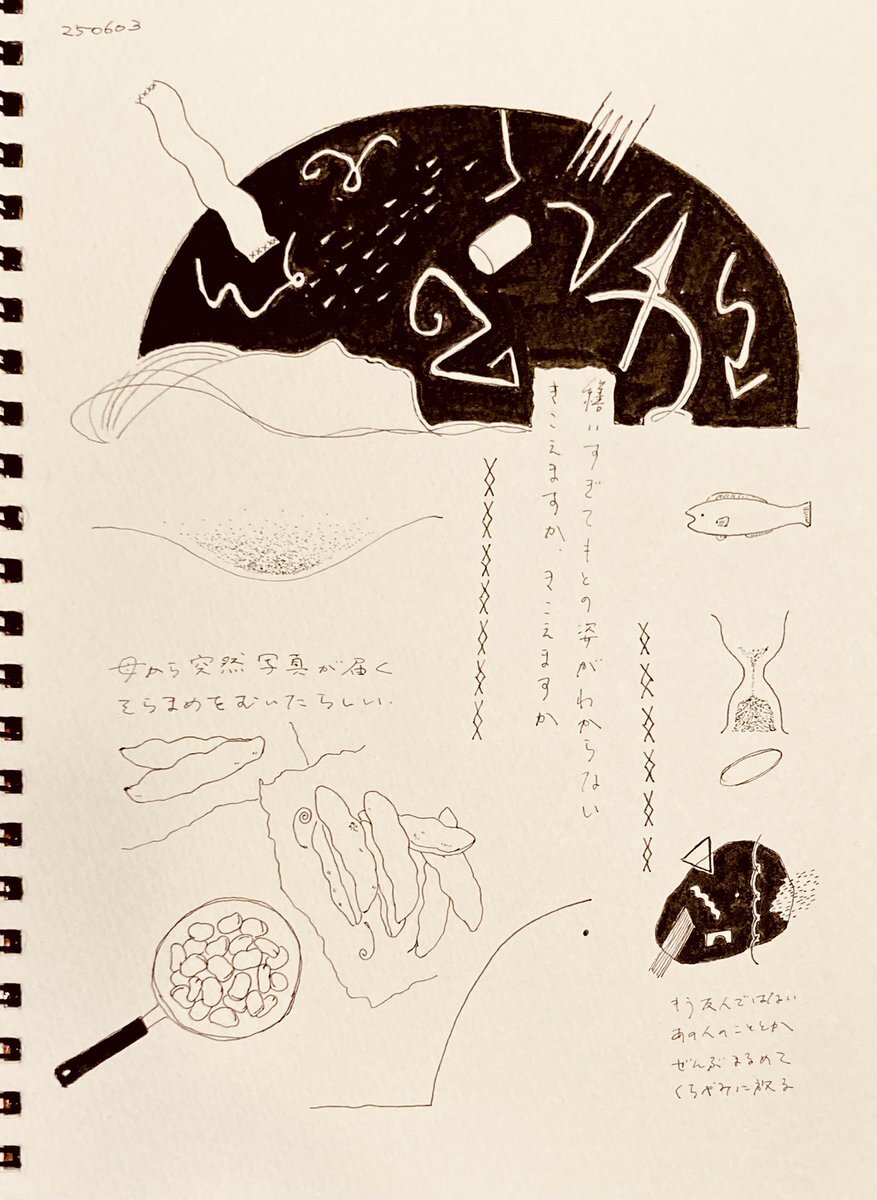 250603
繕いすぎてもとの姿がわからない
きこえますか、きこえますか
母から突然写真が届く
そらまめをむいたらしい.
もう友人ではない
あの人のこととか
ぜんぶまるめて
くらやみに放る